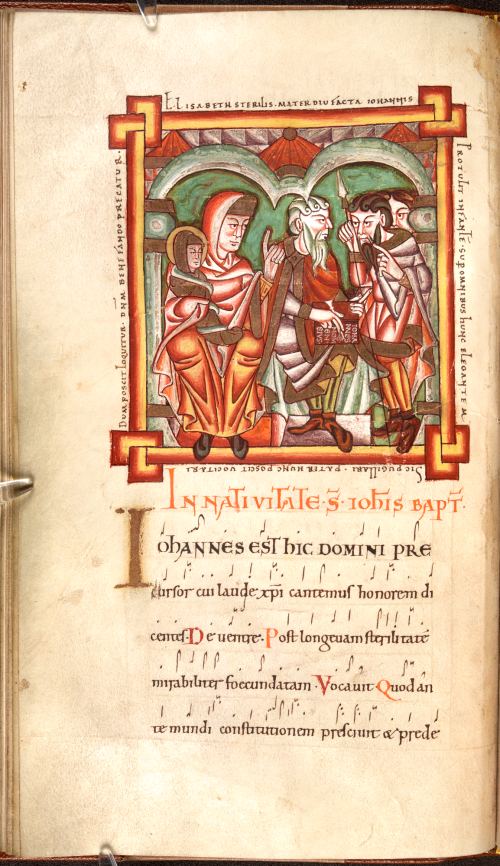 ELISABETH STERILIS. MATER DIU FACTA IOHANNIS
PROTULIT INFANTE. SUP OMNIBUS HUNC ELEGANTEM
SIC PUGILLARI. PATER HUNC POSCIT VOCITARI
DUM POSCIT LOQUITUR. DNM BENEFANDO PRECATUR.
IOHA
NNES
EST
NOM
IN NATIVITATE. S̄. IOHIS BAPT̄.
IOHANNES EST HIC DOMINI PRE
cursor cui laude xp̄i cantemus honorem di
centes. De ventre. Post longeuam sterilitatē
mirabiliter foecundatam. Vocauit. Quod an
te mundi constitutionem presciuit & prede